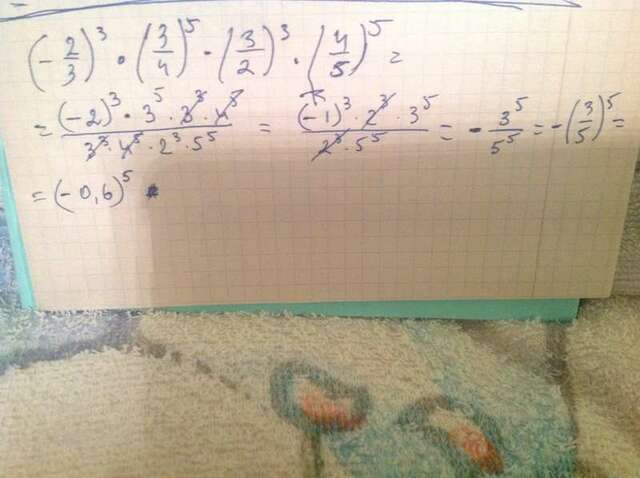 (-2/3)³ · (3/4)⁵ · (3/2)³ · (4/5)⁵ =
= (-2)³ · 3⁵ · 3³ · 4⁵ / 3³ · 4⁵ · 2³ · 5⁵ = (-1)³ · 2³ · 3⁵ / 2³ · 5⁵ = - 3⁵ / 5⁵ = -(3/5)⁵ =
= (-0,6)⁵